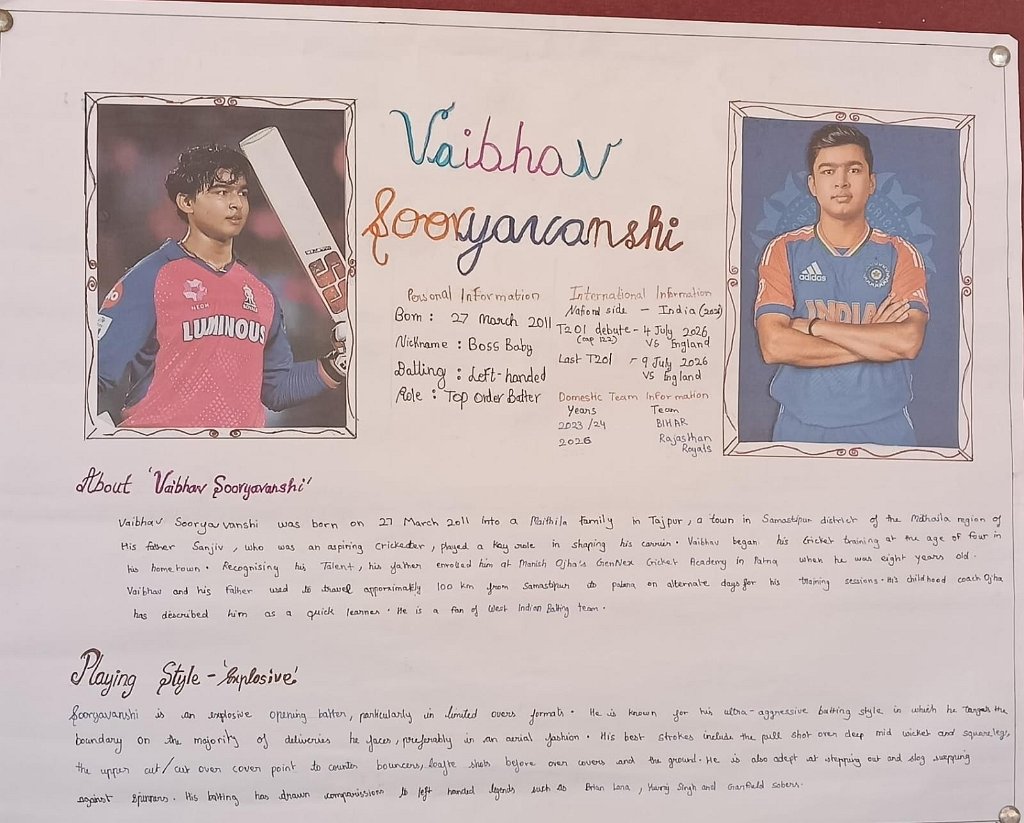 Vaibhav
Sooryavanshi
LUMINOUS
NEOM
adidas
INDIA
Personal Information
Born : 27 March 2011
Nickname : Boss Baby
Batting : Left-handed
Role : Top Order Batter
International Information
National side - India (2026)
T20I debute - 4 July 2026
(cap 122) VS England
Last T20I - 9 July 2026
VS England
Domestic Team Information
Years Team
2023/24 BIHAR
2026 Rajasthan
Royals
About 'Vaibhav Sooryavanshi'
Vaibhav Sooryavanshi was born on 27 March 2011 into a Maithila family in Tajpur, a town in Samastipur district of the Mithaila region of
His father Sanjiv, who was an aspiring cricketer, played a key role in shaping his carrier. Vaibhav began his cricket training at the age of four in
his hometown. Recognising his Talent, his father enrolled him at Manish Ojha's GenNex Cricket Academy in Patna when he was eight years old.
Vaibhav and his father used to travel approximately 100 km from Samastipur to patana on alternate days for his training sessions. His childhood coach Ojha
has described him as a quick learner. He is a fan of West Indian Batting team.
Playing Style - 'Explosive'
Sooryavanshi is an explosive opening batter, particularly in limited overs formats. He is known for his ultra-aggressive batting style in which he targets the
boundary on the majority of deliveries he faces, preferably in an aerial fashion. His best strokes include the pull shot over deep mid wicket and square leg,
the upper cut/cut over cover point to counter bouncers, lofte shots before over covers and the ground. He is also adept at stepping out and slog swepping
against spinners. His batting has drawn comparisions to left handed legends such as Brian Lara, Yuvraj Singh and Garfield sobers.